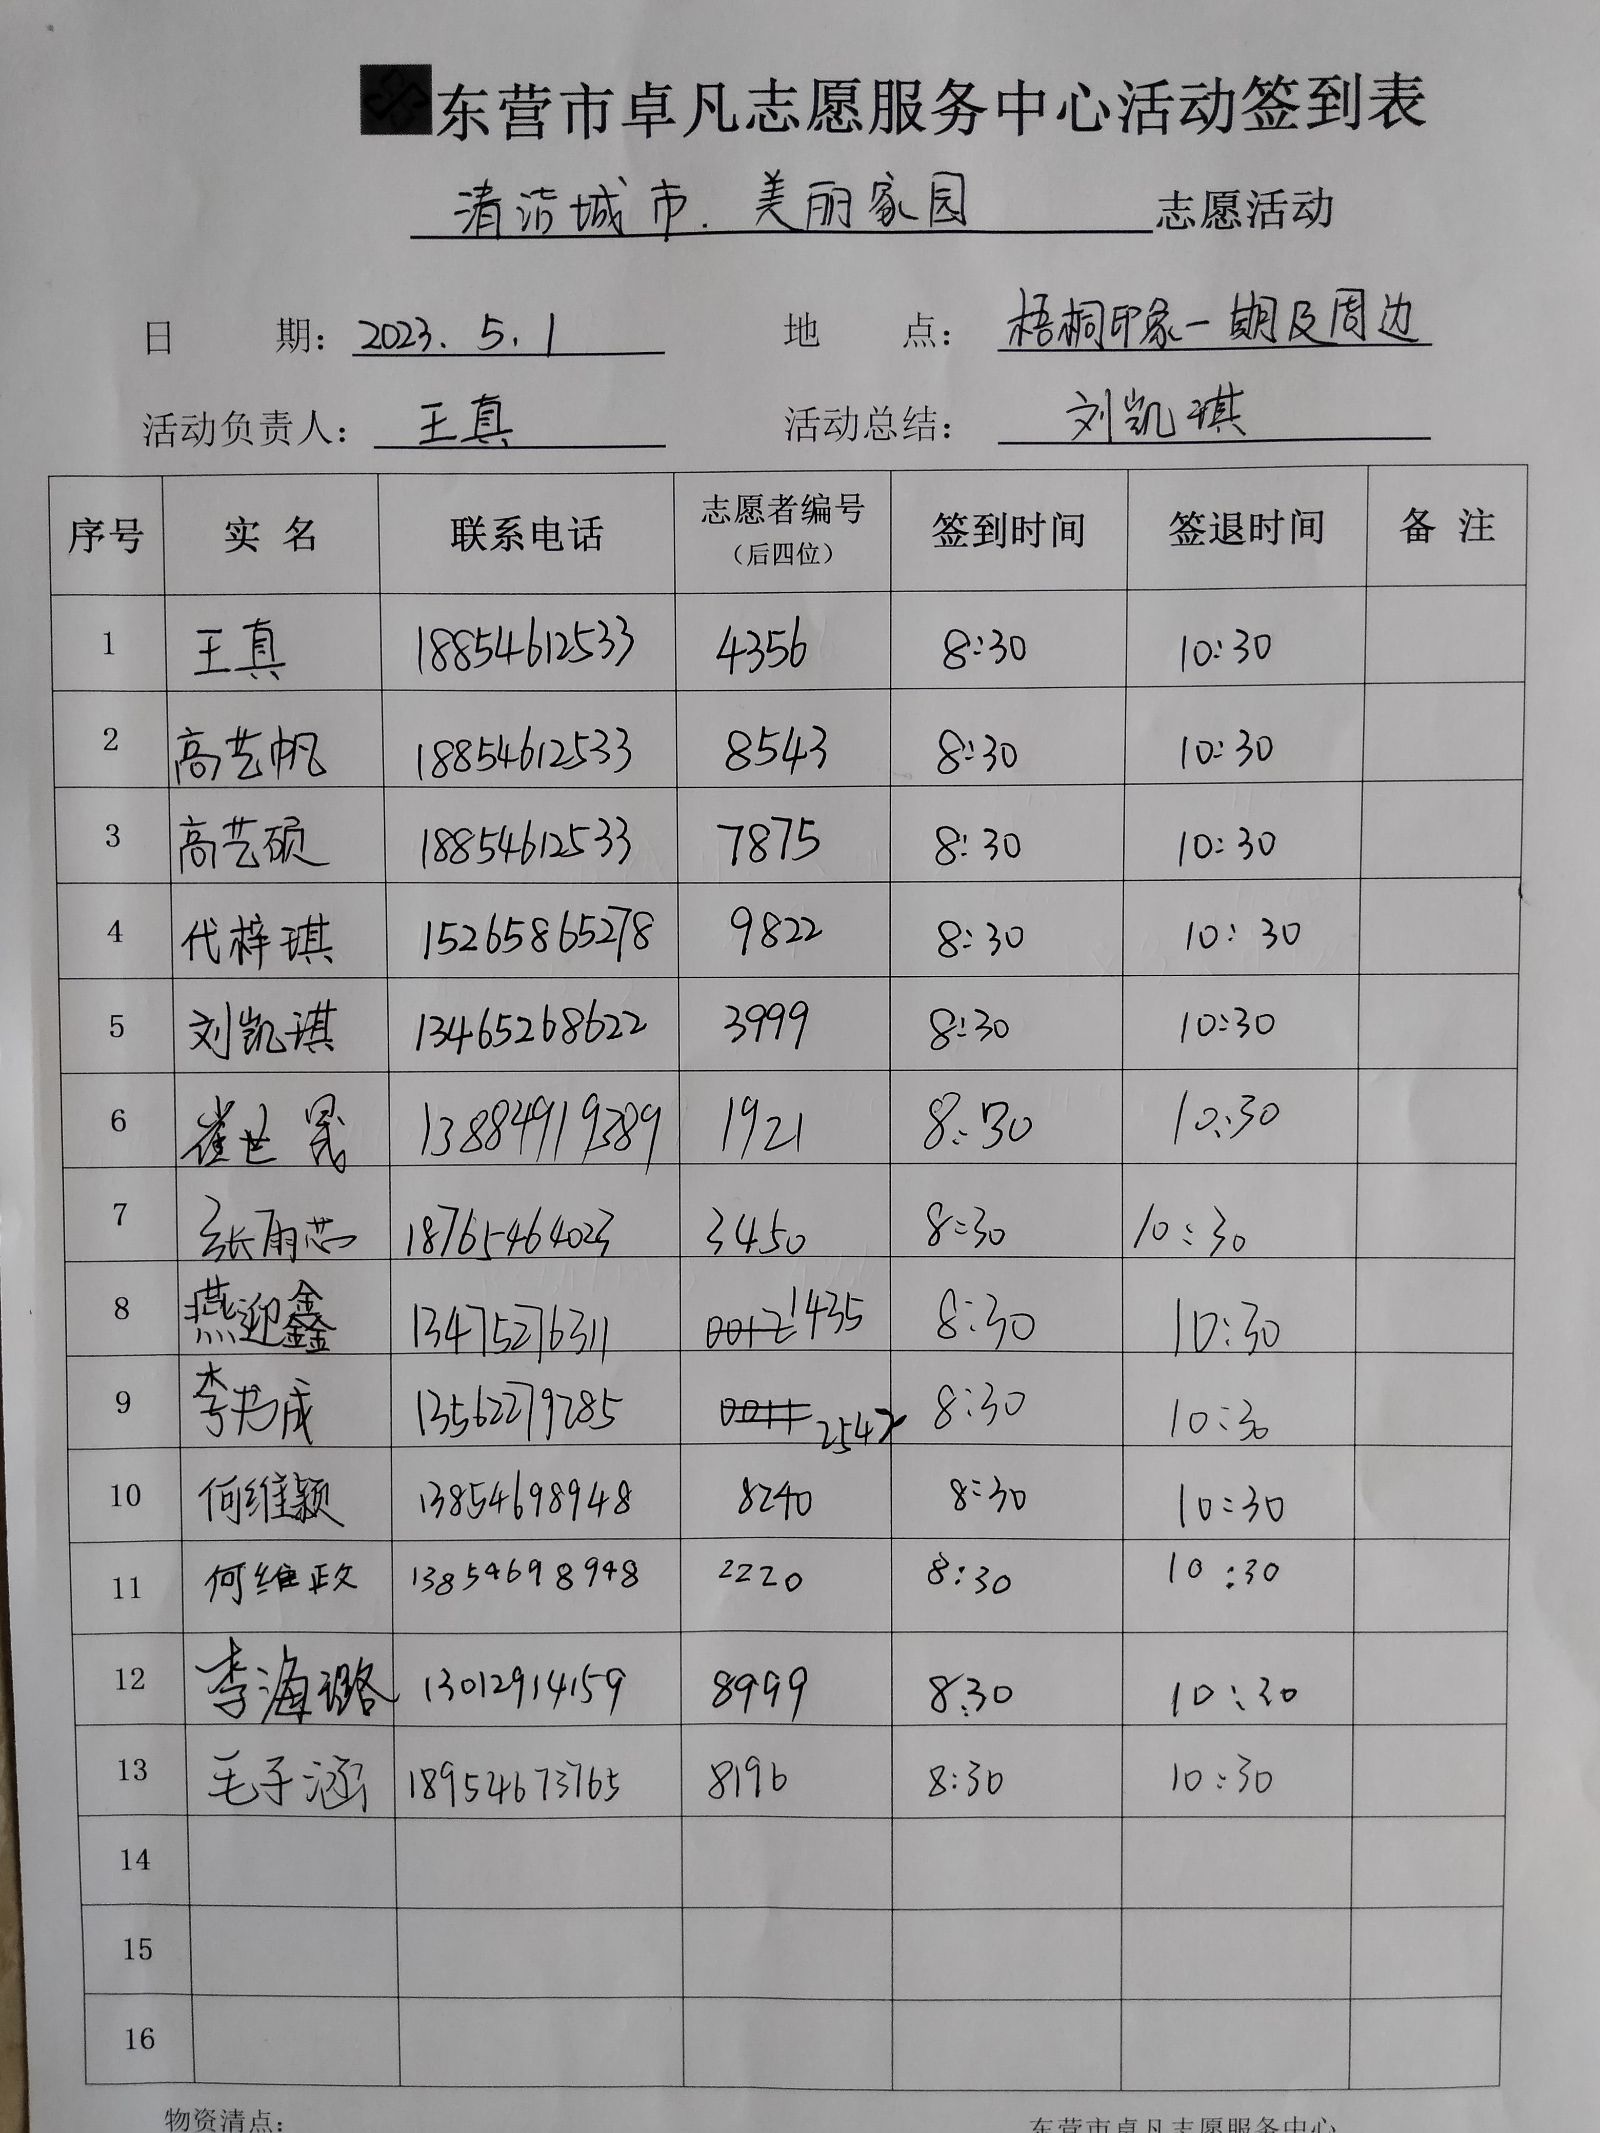 东营市卓凡志愿服务中心活动签到表
清洁城市.美丽家园 志愿活动
日 期: 2023.5.1 地 点: 梧桐印象一期及周边
活动负责人: 王真 活动总结: 刘凯琪
序号 实 名 联系电话 志愿者编号 (后四位) 签到时间 签退时间 备 注
1 王真 18854612533 4356 8:30 10:30
2 高艺帆 18854612533 8543 8:30 10:30
3 高艺硕 18854612533 7875 8:30 10:30
4 代梓琪 15265865278 9822 8:30 10:30
5 刘凯琪 13465268622 3999 8:30 10:30
6 崔世晟 13884919389 1921 8:30 10:30
7 张雨芯 18765464023 3450 8:30 10:30
8 燕迎鑫 13475276311 0012 1435 8:30 10:30
9 13562279285 8:30 10:30
10 何维颖 13854698948 8240 8:30 10:30
11 何维政 13854698948 2220 8:30 10:30
12 李海璐 13012914159 8999 8:30 10:30
13 毛子涵 18954673765 8196 8:30 10:30
14
15
16
物资清点: 东营市卓凡志愿服务中心